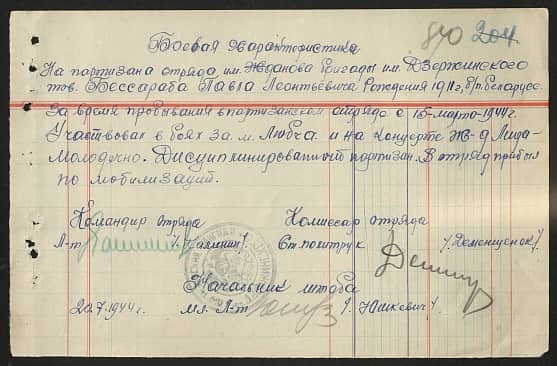 870 204
Боевая характеристика
На партизана отряда им. Жданова бригады им. Дзержинского
тов. Бессараба Павла Леонтьевича рождения 1911г, б/п. беларусс.
За время пребывания в партизанском отряде с 15-марта-1944г.
Участвовал в боях за м. Любча и на концерте Ж-д Лида-
Молодечно. Дисциплинированный партизан. В отряд прибыл
по мобилизаций.
Командир отряда Комиссар отряда
Л-т /Калинин/ Ст. политрук /Деменщенок/
Начальник штаба
20.7.1944г. мл. Л-т /Яшкевич/